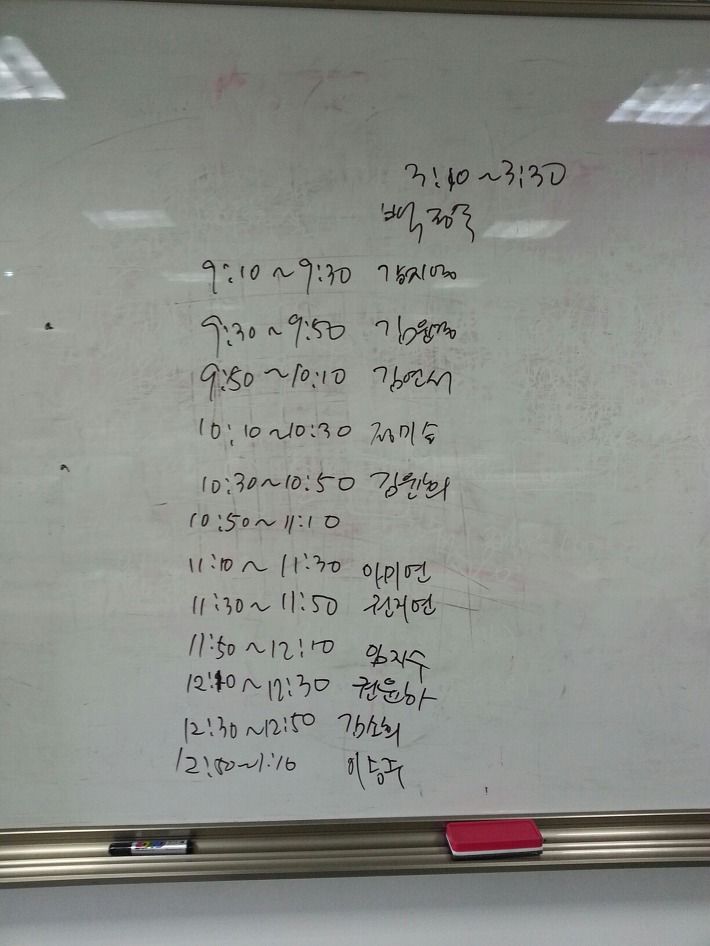 3:10~3:30
9:10~9:30 김지영
9:30~9:50
9:50~10:10 김연서
10:10~10:30 정미송
10:30~10:50
10:50~11:10
11:10~11:30 이미연
11:30~11:50 권지연
11:50~12:10 임지수
12:10~12:30 권윤하
12:30~12:50 김소희
12:50~1:10